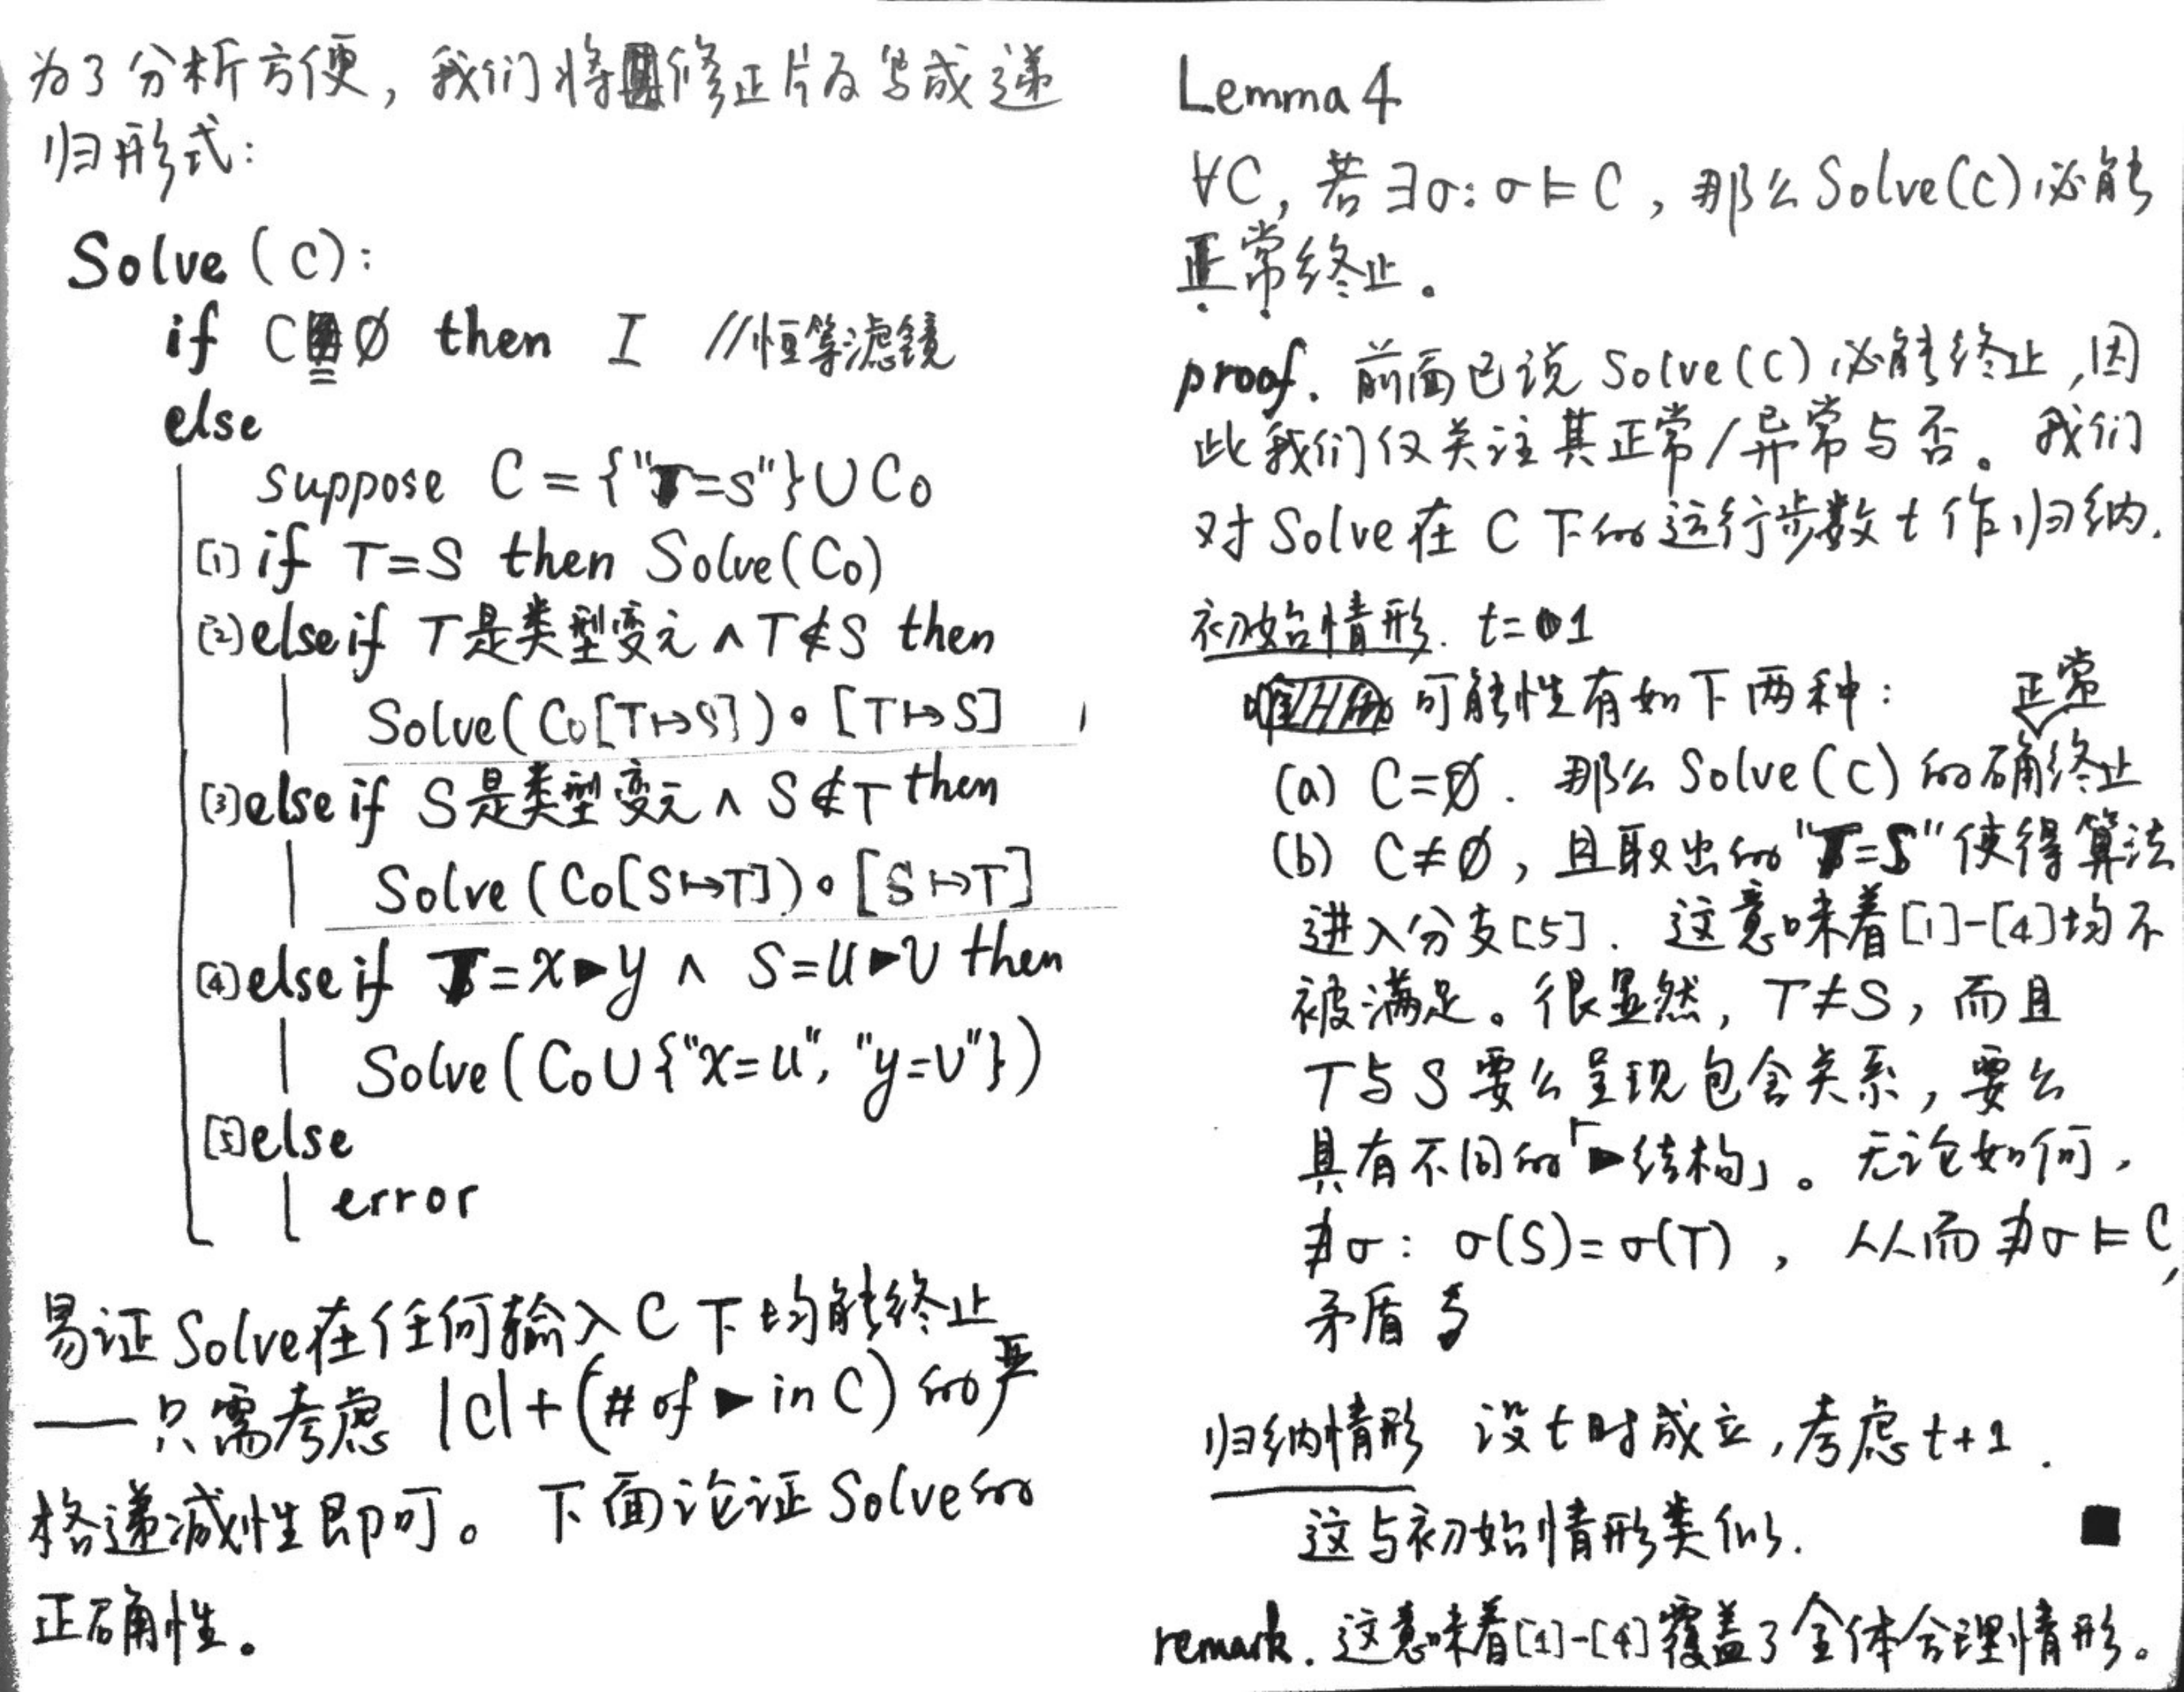 为了分析方便，我们将修正片段写成递
归形式：
Solve (C):
if C = ∅ then I //恒等滤镜
else
suppose C = {"T=S"}∪C₀
[1] if T=S then Solve(C₀)
[2] else if T是类型变元 ∧ T∉S then
Solve(C₀[T↦S]) ∘ [T↦S]
[3] else if S是类型变元 ∧ S∉T then
Solve (C₀[S↦T]) ∘ [S↦T]
[4] else if T=x▶y ∧ S=u▶v then
Solve(C₀∪{"x=u", "y=v"})
[5] else
error
易证Solve在任何输入C下均能终止
——只需考虑 |C|+(# of ▶ in C) 的严
格递减性即可。下面论证Solve的
正确性。
Lemma 4
∀C, 若∃σ: σ⊨C, 那么Solve(C)必能
正常终止。
proof. 前面已说Solve(C)必能终止,因
此我们仅关注其正常/异常与否。我们
对Solve在C下的运行步数t作归纳.
初始情形. t=1
可能性有如下两种:
(a) C=∅. 那么Solve(C)的确正常终止
(b) C≠∅, 且取出的"T=S"使得算法
进入分支[5]. 这意味着[1]-[4]均不
被满足。很显然, T≠S, 而且
T与S要么呈现包含关系, 要么
具有不同的「▶结构」。无论如何,
∄σ: σ(S)=σ(T), 从而∄σ⊨C,
矛盾
归纳情形 设t时成立,考虑t+1.
这与初始情形类似. ■
remark. 这意味着[1]-[4]覆盖了全体合理情形。